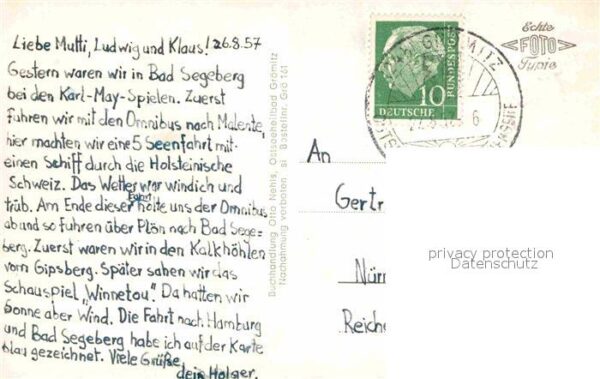 Liebe Mutti, Ludwig und Klaus! 26.8.57
Gestern waren wir in Bad Segeberg
bei den Karl-May-Spielen. Zuerst
fuhren wir mit den Omnibus nach Malente,
hier machten wir eine 5 Seenfahrt mit
einen Schiff durch die Holsteinische
Schweiz. Das Wetter war windich und
trüb. Am Ende dieser Fahrt holte uns der Omnibus
ab und so fuhren über Plön nach Bad Sege-
berg. Zuerst waren wir in den Kalkhöhlen
vom Gipsberg. Später sahen wir das
Schauspiel „Winnetou". Da hatten wir
Sonne aber Wind. Die Fahrt nach Hamburg
und Bad Segeberg habe ich auf der Karte
blau gezeichnet. Viele Grüße
dein Holger.
Buchhandlung Otto Nehls, Ostseeheilbad Grömitz
Nachahmung verboten Bestellnr. Grö 161
10
DEUTSCHE
BUNDESPOST
6
Echte
FOTO
An
Gertr
Nür
Reiche
privacy protection
Datenschutz